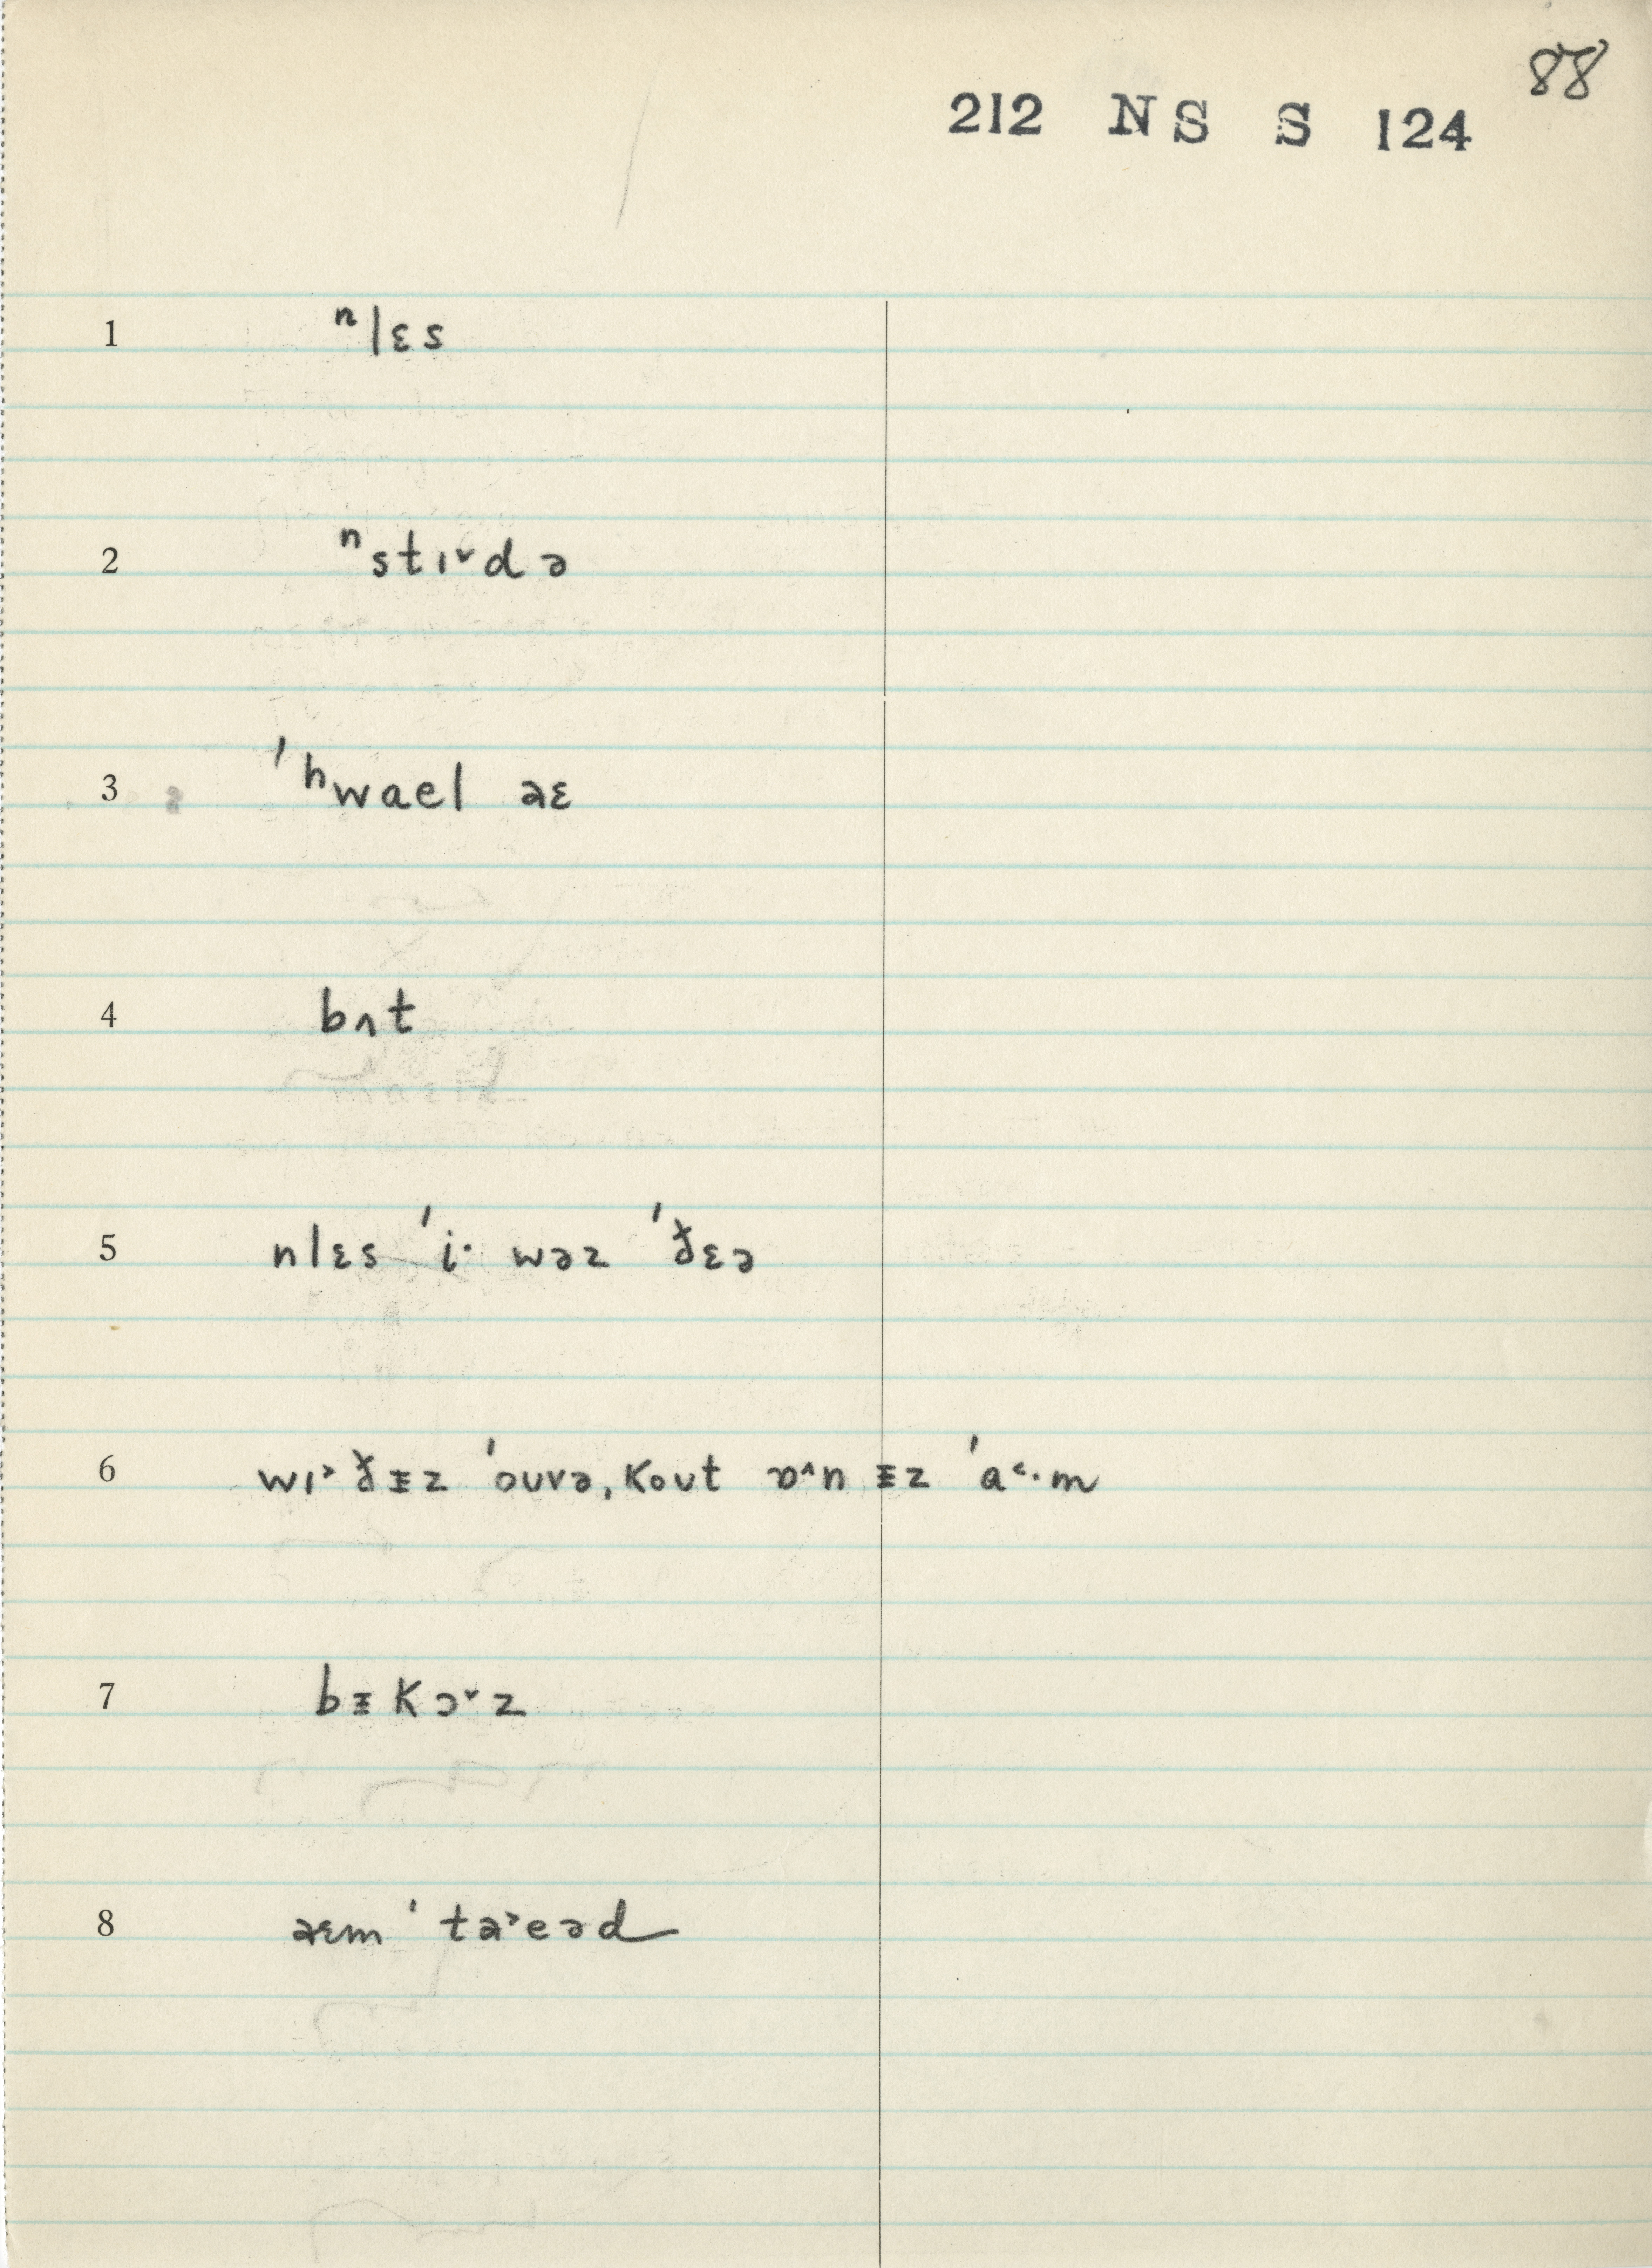 88
212 NS S 124
1 ⁿlɛs
2 ⁿstɪ˅də
3 ˈʰwael əɛ
4 bʌt
5 nlɛs ˈi· wəz ˈðɛə
6 wɪ˃ ðᵻz ˈouvə, kout ɒ^n ᵻz ˈa˂·m
7 bᵻkɔ˅z
8 əɛm ˈta˃eəd